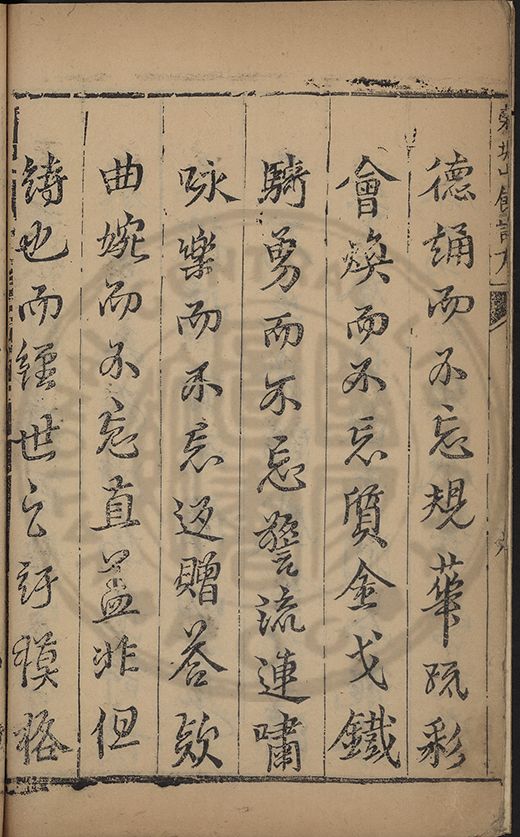 德誦而不忘規華疏彩
會煥而不忘質金戈鐵
騎勇而不忘警流連嘯
咏樂而不忘返贈答欵
曲婉而不忘直盖非但
詩也而經世之訏謨格